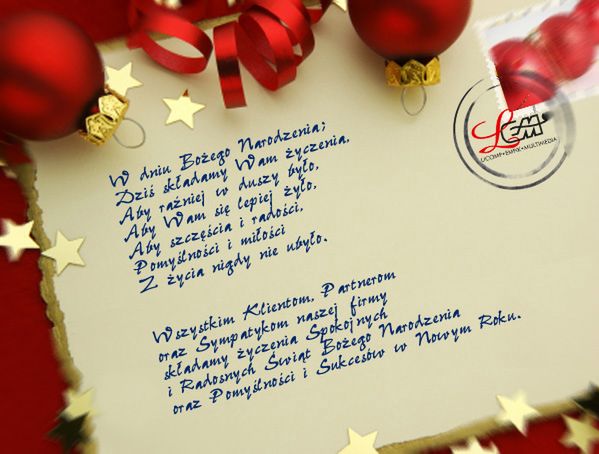 W dniu Bożego Narodzenia;
Dziś składamy Wam życzenia,
Aby raźniej w duszy było,
Aby Wam się lepiej żyło,
Aby szczęścia i radości,
Pomyślności i miłości
Z życia nigdy nie ubyło.
Wszystkim Klientom, Partnerom
oraz Sympatykom naszej firmy
składamy życzenia Spokojnych
i Radosnych Świąt Bożego Narodzenia
oraz Pomyślności i Sukcesów w Nowym Roku.
LCEMM
UCOMP•EMPIK•MULTIMEDIA